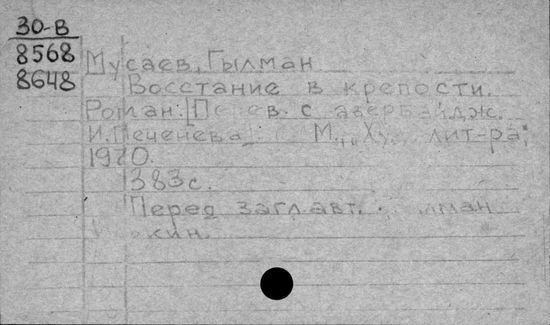 30-В
8568
8648
Мусаев, Гылман
Восстание в крепости.
Роман. [Перев. с азербайдж.
И. Печенева]. М., "Ху лит-ра",
1970.
383 с.
Перед загл. авт.: лман
кин.